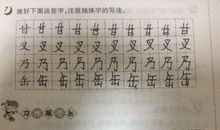 练好下面这些字,注意独体字的写法。
甘 甘 甘 甘 甘 甘 甘 甘 甘
叉 叉 叉 叉 叉 叉 叉 叉 叉
乃 乃 乃 乃 乃 乃 乃 乃 乃
缶 缶 缶 缶 缶 缶 缶 缶 缶